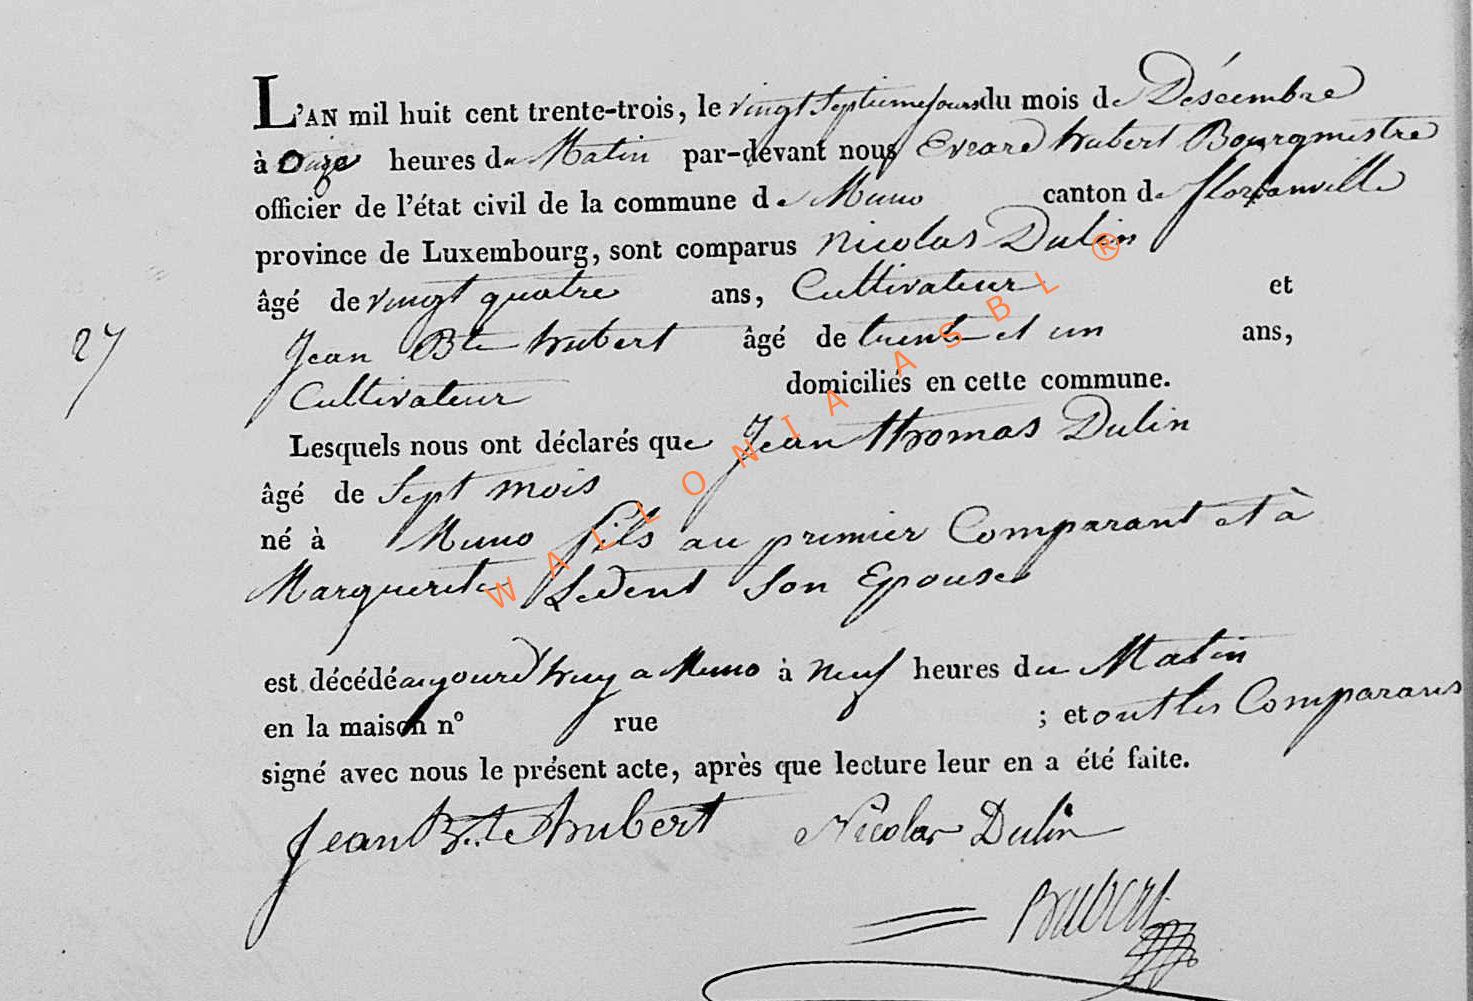 L'AN mil huit cent trente-trois, le vingt Septieme jours du mois de Désembre
à Onze heures du Matin par-devant nous Evrard hubert Bourgmestre
officier de l'état civil de la commune de Muno canton de florenville
province de Luxembourg, sont comparus Nicolas Dulin
âgé de vingt quatre ans, Cultivateur et
27
Jean Bte hubert âgé de trente et un ans,
Cultivateur domiciliés en cette commune.
Lesquels nous ont déclarés que Jean thomas Dulin
âgé de Sept mois
né à Muno fils au premier Comparant et à
Marguerite Ledent Son Epouse
est décédé aujourd'huy a Muno à neuf heures du Matin
en la maison n° rue ; et ont les Comparans
signé avec nous le présent acte, après que lecture leur en a été faite.
Jean Bte hubert Nicolas Dulin
hubert
WALLONIA ASBL ®